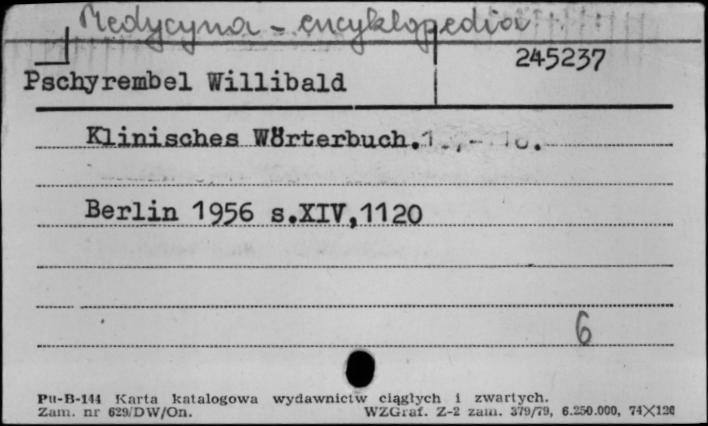 Medycyna - encyklopedia
245237
Pschyrembel Willibald
Klinisches Wörterbuch.
Berlin 1956 s.XIV,1120
6
Pu-B-144 Karta katalogowa wydawnictw ciągłych i zwartych.
Zam. nr 629/DW/On. WZGraf. Z-2 zam. 379/79, 6.250.000, 74X120